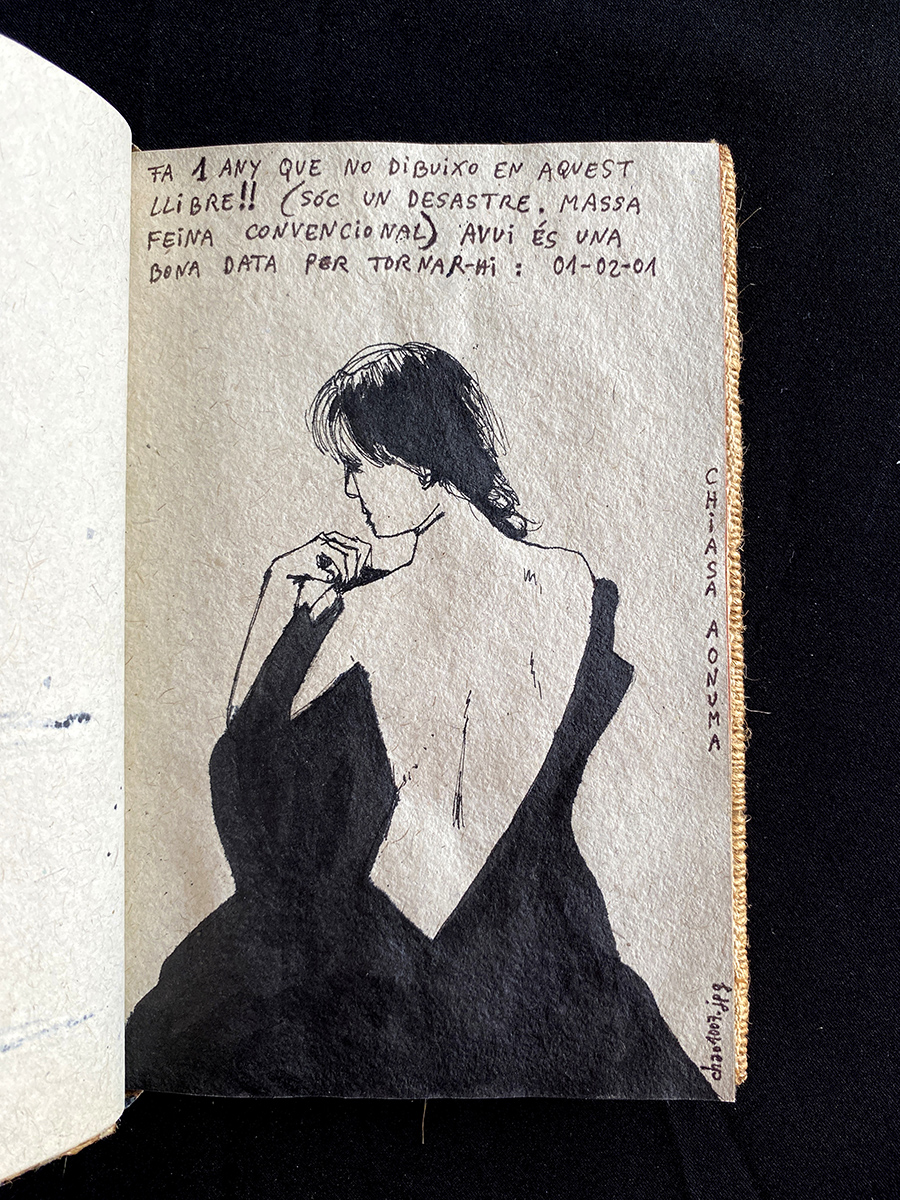 FA 1 ANY QUE NO DIBUIXO EN AQUEST
LLIBRE!! (SÓC UN DESASTRE. MASSA
FEINA CONVENCIONAL) AVUI ÉS UNA
BONA DATA PER TORNAR-HI : 01-02-01
CHIASA AONUMA
chao1007.jpg